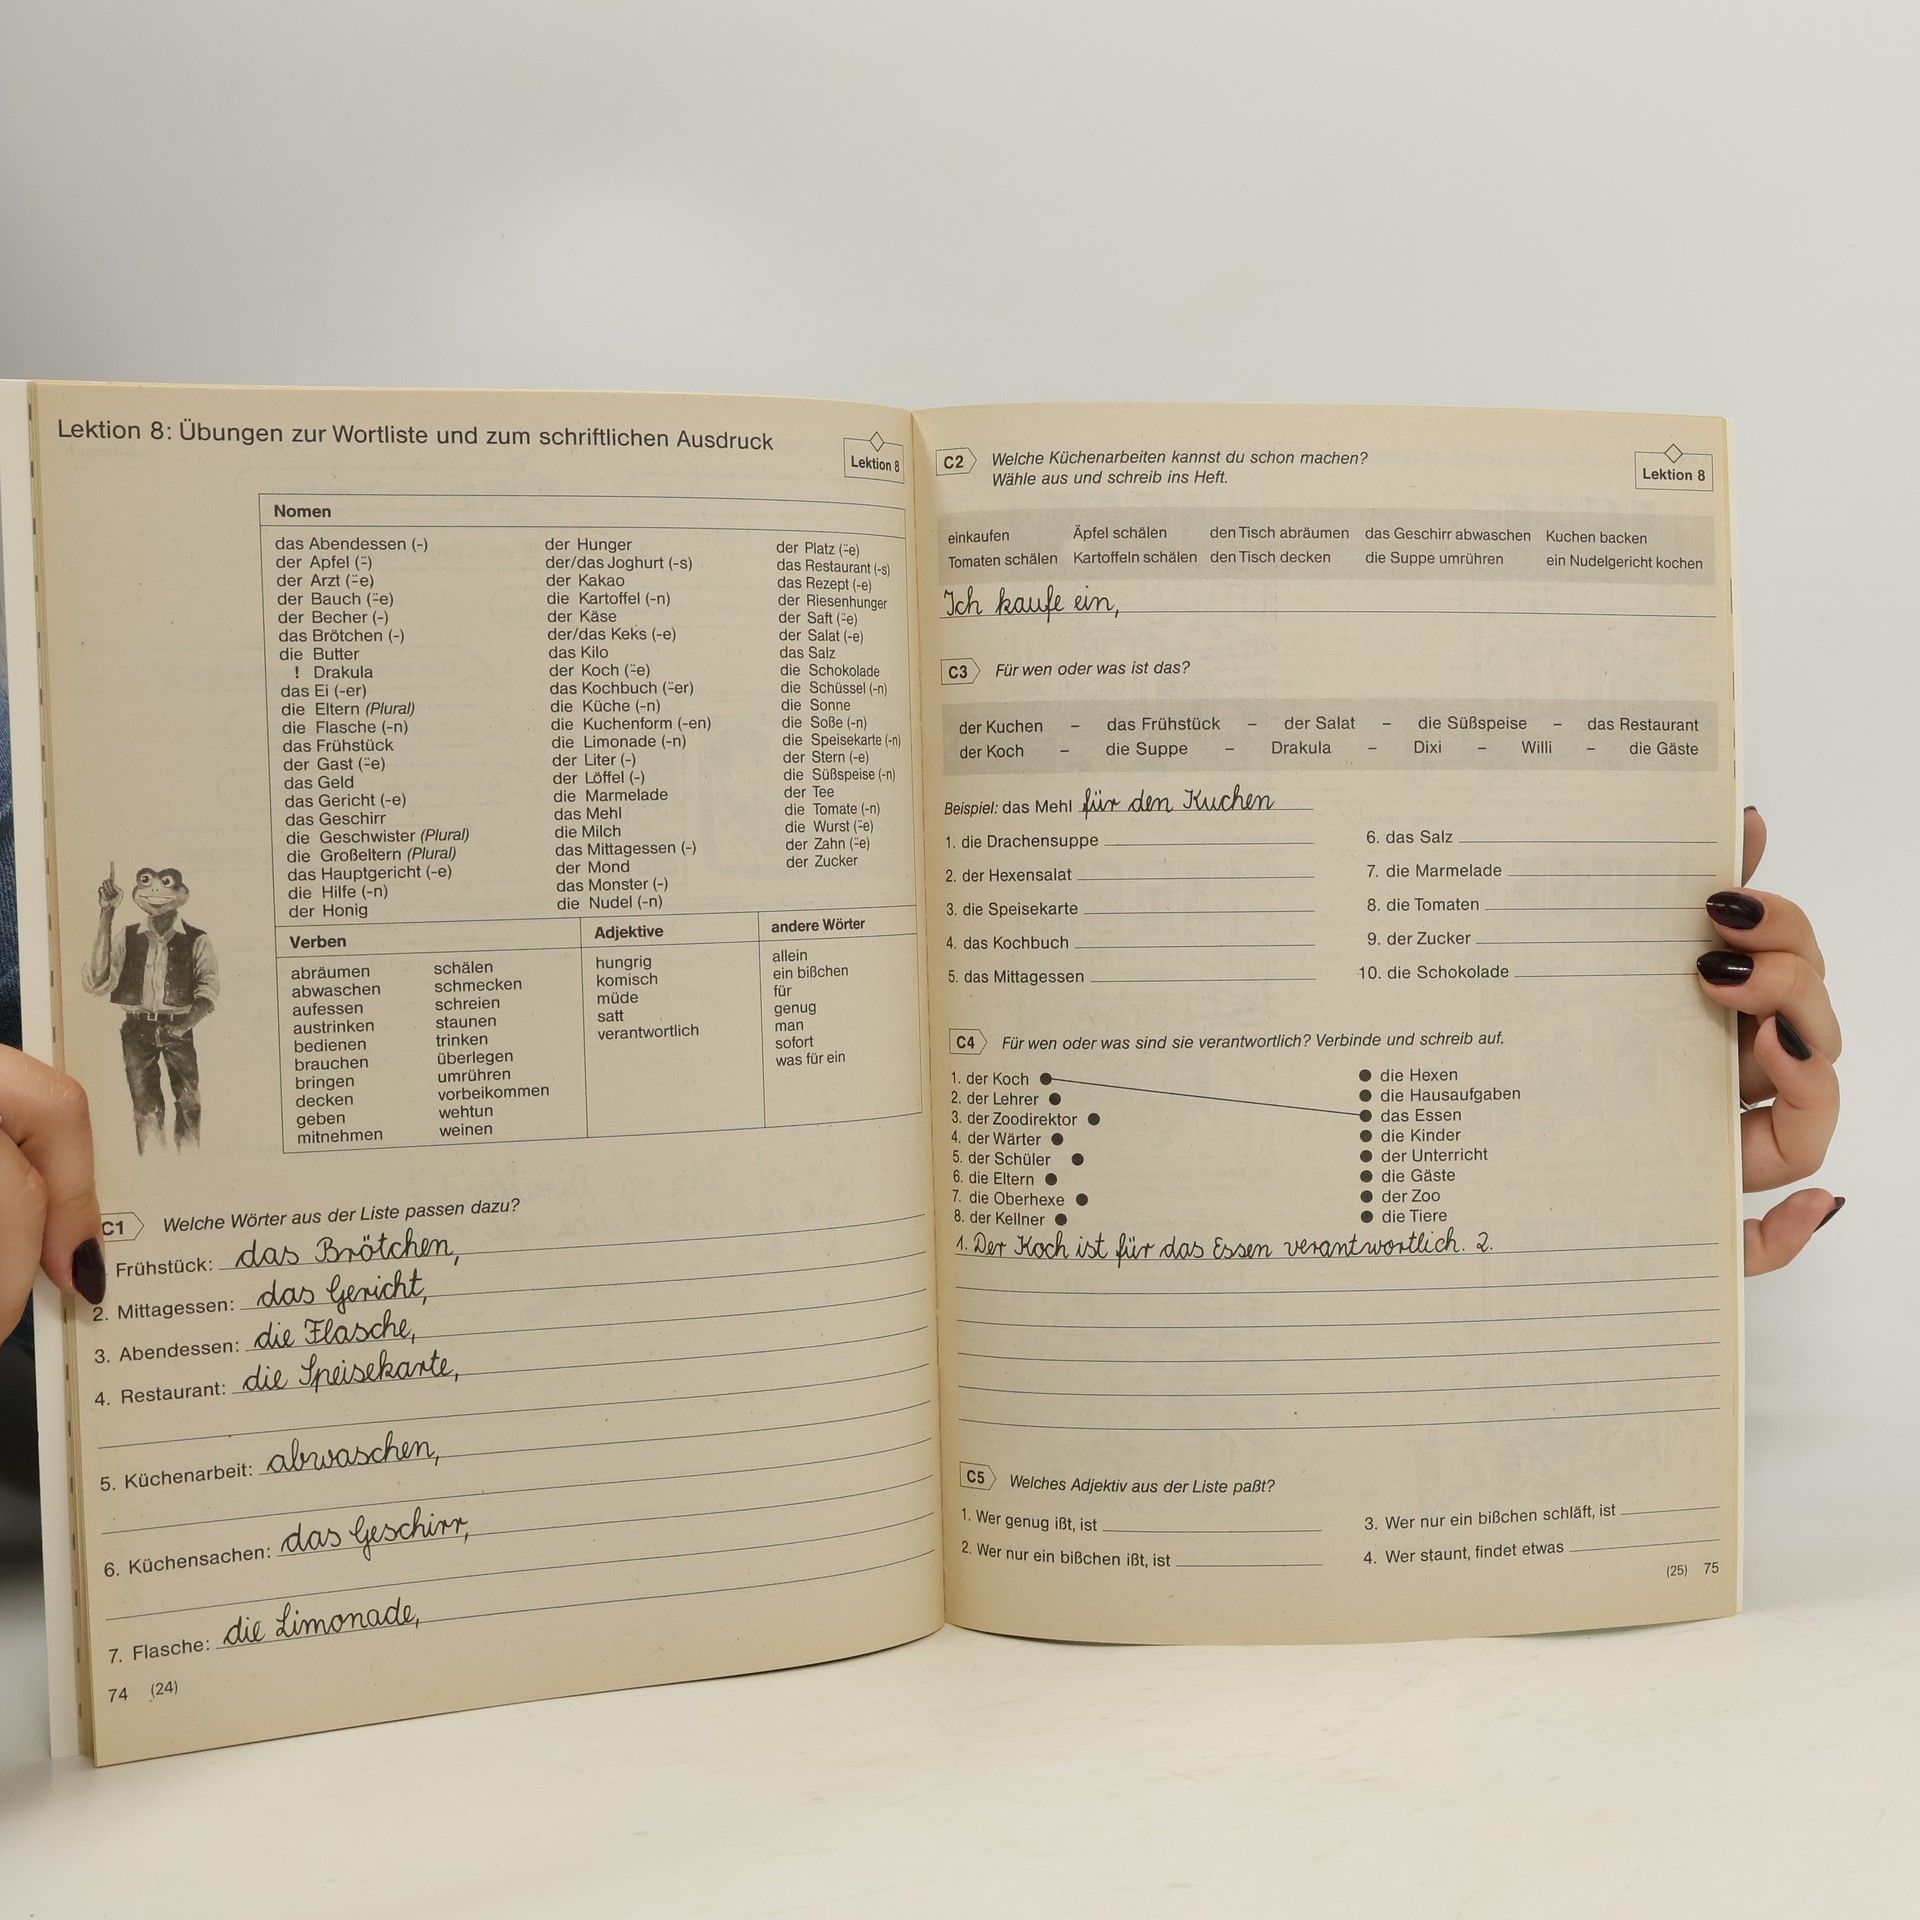 Lektion 8: Übungen zur Wortliste und zum schriftlichen Ausdruck
Lektion 8
Nomen
das Abendessen (-)
der Apfel (¨)
der Arzt (¨e)
der Bauch (¨e)
der Becher (-)
das Brötchen (-)
die Butter
! Drakula
das Ei (-er)
die Eltern (Plural)
die Flasche (-n)
das Frühstück
der Gast (¨e)
das Geld
das Gericht (-e)
das Geschirr
die Geschwister (Plural)
die Großeltern (Plural)
das Hauptgericht (-e)
die Hilfe (-n)
der Honig
der Hunger
der/das Joghurt (-s)
der Kakao
die Kartoffel (-n)
der Käse
der/das Keks (-e)
das Kilo
der Koch (¨e)
das Kochbuch (¨er)
die Küche (-n)
die Kuchenform (-en)
die Limonade (-n)
der Liter (-)
der Löffel (-)
die Marmelade
das Mehl
die Milch
das Mittagessen (-)
der Mond
das Monster (-)
die Nudel (-n)
der Platz (¨e)
das Restaurant (-s)
das Rezept (-e)
der Riesenhunger
der Saft (¨e)
der Salat (-e)
das Salz
die Schokolade
die Schüssel (-n)
die Sonne
die Soße (-n)
die Speisekarte (-n)
der Stern (-e)
die Süßspeise (-n)
der Tee
die Tomate (-n)
die Wurst (¨e)
der Zahn (¨e)
der Zucker
Verben
abräumen
abwaschen
aufessen
austrinken
bedienen
brauchen
bringen
decken
geben
mitnehmen
schälen
schmecken
schreien
staunen
trinken
überlegen
umrühren
vorbeikommen
wehtun
weinen
Adjektive
hungrig
komisch
müde
satt
verantwortlich
andere Wörter
allein
ein bißchen
für
genug
man
sofort
was für ein
C1 Welche Wörter aus der Liste passen dazu?
Frühstück: das Brötchen,
2. Mittagessen: das Gericht,
3. Abendessen: die Flasche,
4. Restaurant: die Speisekarte,
5. Küchenarbeit: abwaschen,
6. Küchensachen: das Geschirr,
7. Flasche: die Limonade,
74 (24)
C2 Welche Küchenarbeiten kannst du schon machen?
Wähle aus und schreib ins Heft.
Lektion 8
einkaufen Äpfel schälen den Tisch abräumen das Geschirr abwaschen Kuchen backen
Tomaten schälen Kartoffeln schälen den Tisch decken die Suppe umrühren ein Nudelgericht kochen
Ich kaufe ein,
C3 Für wen oder was ist das?
der Kuchen – das Frühstück – der Salat – die Süßspeise – das Restaurant
der Koch – die Suppe – Drakula – Dixi – Willi – die Gäste
Beispiel: das Mehl für den Kuchen
1. die Drachensuppe
2. der Hexensalat
3. die Speisekarte
4. das Kochbuch
5. das Mittagessen
6. das Salz
7. die Marmelade
8. die Tomaten
9. der Zucker
10. die Schokolade
C4 Für wen oder was sind sie verantwortlich? Verbinde und schreib auf.
1. der Koch
2. der Lehrer
3. der Zoodirektor
4. der Wärter
5. der Schüler
6. die Eltern
7. die Oberhexe
8. der Kellner
die Hexen
die Hausaufgaben
das Essen
die Kinder
der Unterricht
die Gäste
der Zoo
die Tiere
1. Der Koch ist für das Essen verantwortlich. 2.
C5 Welches Adjektiv aus der Liste paßt?
1. Wer genug ißt, ist
2. Wer nur ein bißchen ißt, ist
3. Wer nur ein bißchen schläft, ist
4. Wer staunt, findet etwas
(25) 75